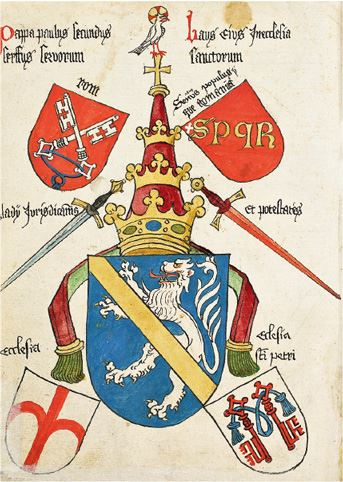 Pappa paulus secundus
serffus servorum
Laus Eius Inecclesia
sanctorum
rom
Senatus populus
que romanus
SPQR
Jurisdicionis
et potestates
Ecclesia
Eclesia
sti petri